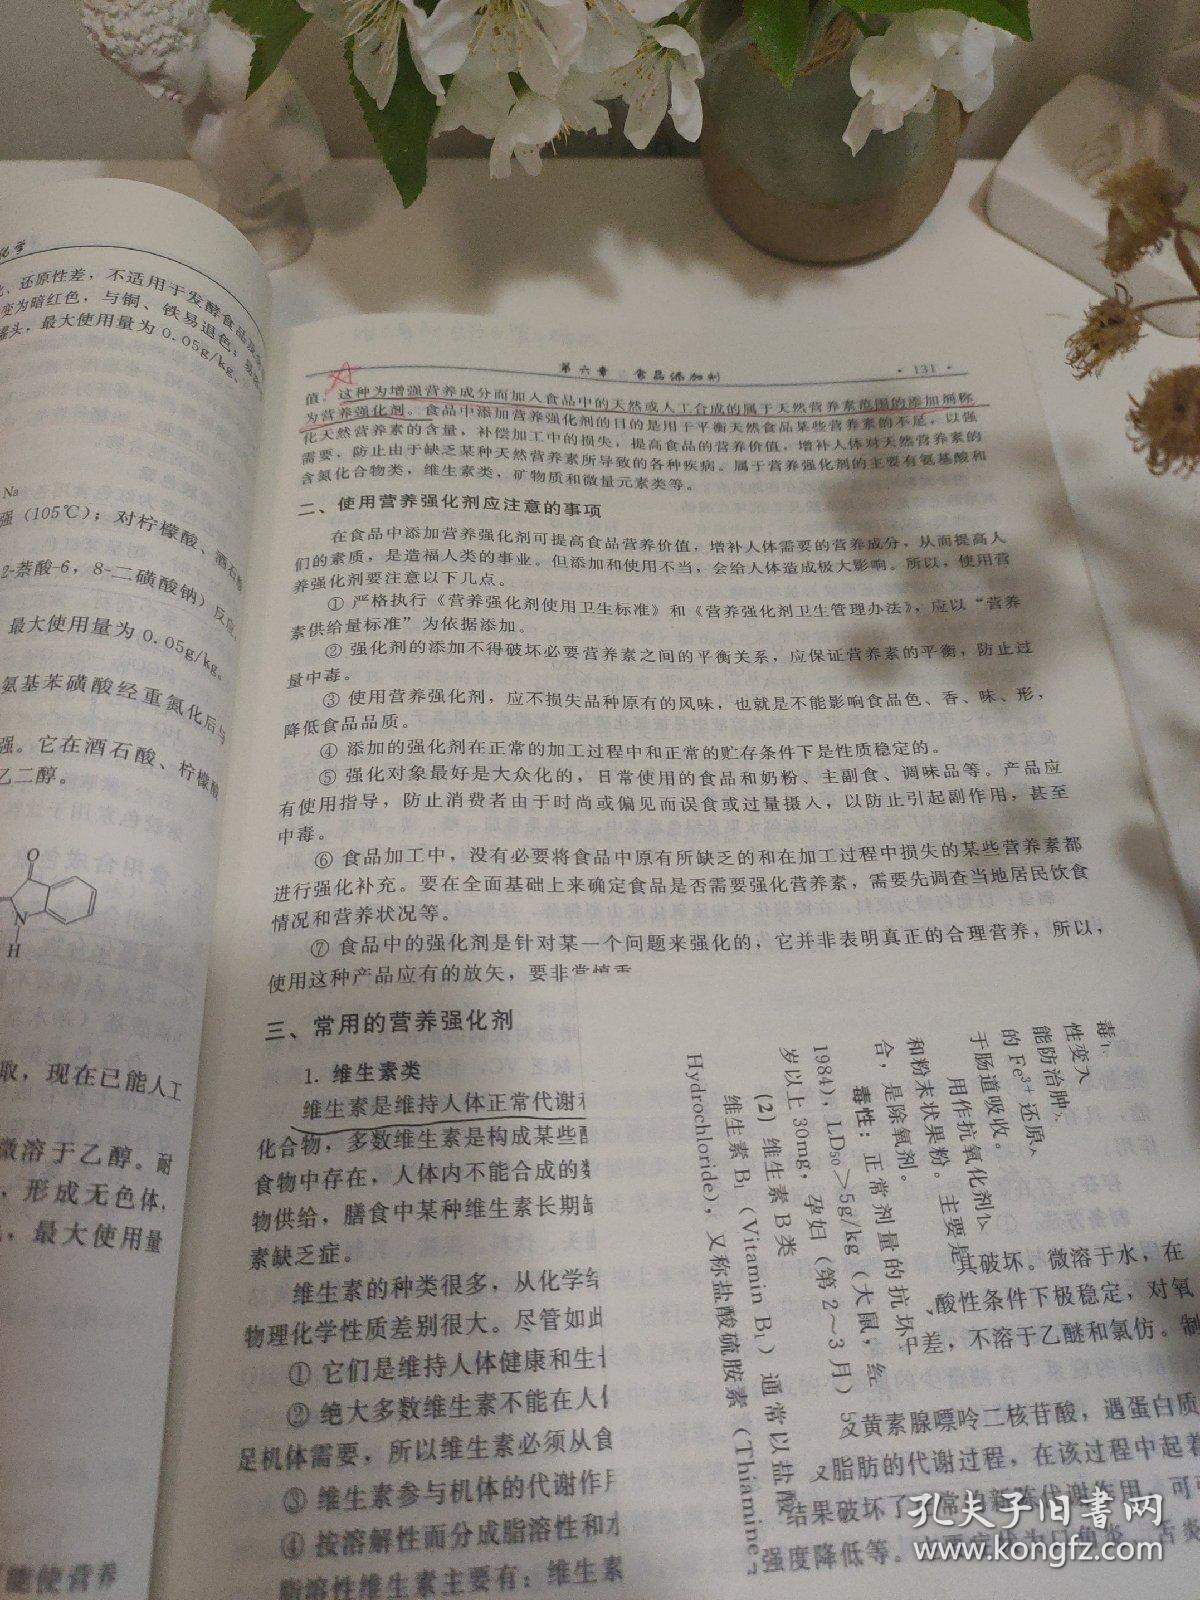 化学
还原性差，不适用于发酵食品
变为暗红色，与铜、铁易退色；
罐头，最大使用量为 0.05g/kg。
Na
强（105℃）；对柠檬酸、酒石酸
2-萘酸-6，8-二磺酸钠）反应，
最大使用量为 0.05g/kg。
氨基苯磺酸经重氮化后与
强。它在酒石酸、柠檬酸
乙二醇。
O
N
H
取，现在已能人工
微溶于乙醇。耐
，形成无色体，
，最大使用量
能使营养
第六章 食品添加剂 · 131 ·
值。这种为增强营养成分而加入食品中的天然或人工合成的属于天然营养素范围的添加剂称
为营养强化剂。食品中添加营养强化剂的目的是用于平衡天然食品某些营养素的不足，以强
化天然营养素的含量，补偿加工中的损失，提高食品的营养价值，增补人体对天然营养素的
需要，防止由于缺乏某种天然营养素所导致的各种疾病。属于营养强化剂的主要有氨基酸和
含氮化合物类，维生素类，矿物质和微量元素类等。
二、使用营养强化剂应注意的事项
在食品中添加营养强化剂可提高食品营养价值，增补人体需要的营养成分，从而提高人
们的素质，是造福人类的事业。但添加和使用不当，会给人体造成极大影响。所以，使用营
养强化剂要注意以下几点。
① 严格执行《营养强化剂使用卫生标准》和《营养强化剂卫生管理办法》，应以“营养
素供给量标准”为依据添加。
② 强化剂的添加不得破坏必要营养素之间的平衡关系，应保证营养素的平衡，防止过
量中毒。
③ 使用营养强化剂，应不损失品种原有的风味，也就是不能影响食品色、香、味、形，
降低食品品质。
④ 添加的强化剂在正常的加工过程中和正常的贮存条件下是性质稳定的。
⑤ 强化对象最好是大众化的，日常使用的食品和奶粉、主副食、调味品等。产品应
有使用指导，防止消费者由于时尚或偏见而误食或过量摄入，以防止引起副作用，甚至
中毒。
⑥ 食品加工中，没有必要将食品中原有所缺乏的和在加工过程中损失的某些营养素都
进行强化补充。要在全面基础上来确定食品是否需要强化营养素，需要先调查当地居民饮食
情况和营养状况等。
⑦ 食品中的强化剂是针对某一个问题来强化的，它并非表明真正的合理营养，所以，
使用这种产品应有的放矢，要非常慎重
三、常用的营养强化剂
1. 维生素类
维生素是维持人体正常代谢
化合物，多数维生素是构成某些酶
食物中存在，人体内不能合成的
物供给，膳食中某种维生素长期缺
素缺乏症。
维生素的种类很多，从化学结
物理化学性质差别很大。尽管如此
① 它们是维持人体健康和生长
② 绝大多数维生素不能在人体
足机体需要，所以维生素必须从食
③ 维生素参与机体的代谢作用
④ 按溶解性而分成脂溶性和水
脂溶性维生素主要有：维生素
毒
性变
能防治肿
的 Fe³⁺ 还原
于肠道吸收。
用作抗氧化剂
和粉末状果粉。主要是
合，是除氧剂。
毒性：正常剂量的抗坏
1984），LD₅₀＞5g/kg（大鼠，经
岁以上 30mg，孕妇（第 2～3 月）
（2）维生素 B 类
维生素 B₁（Vitamin B₁）通常以盐酸
Hydrochloride），又称盐酸硫胺素（Thiamine
其破坏。微溶于水，在
酸性条件下极稳定，对氧
差，不溶于乙醚和氯仿。制
黄素腺嘌呤二核苷酸，遇蛋白质
脂肪的代谢过程，在该过程中起着
结果破坏了正常的新陈代谢作用，可
强度降低等。主要症状为口角炎、舌炎
孔夫子旧书网
www.kongfz.com